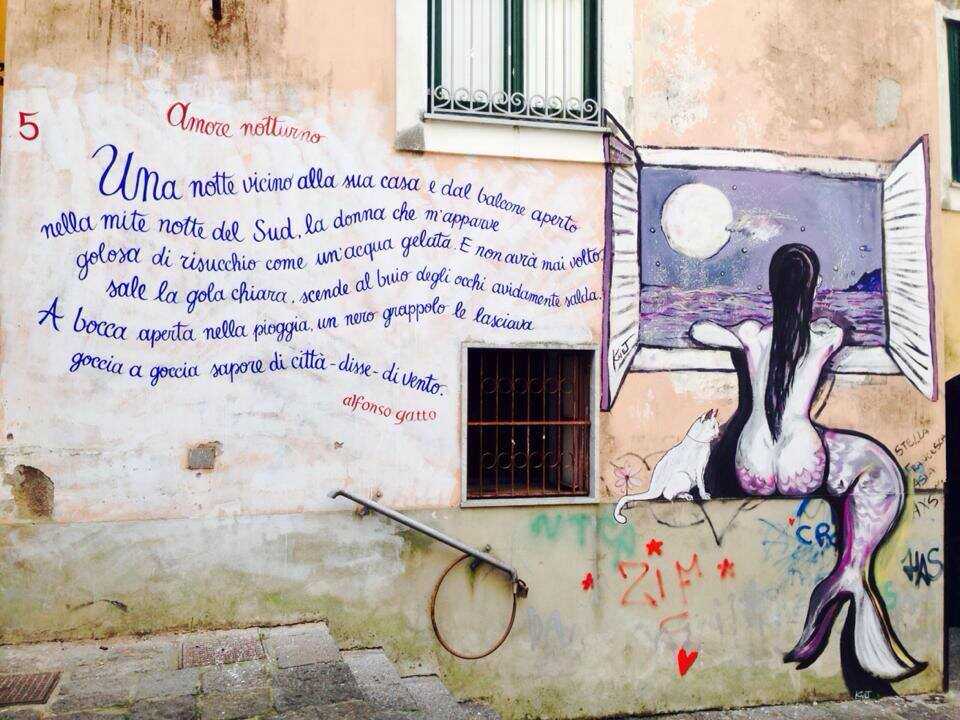 5
Amore notturno
Una notte vicino alla sua casa e dal balcone aperto
nella mite notte del Sud, la donna che m'apparve
golosa di risucchio come un'acqua gelata. E non avrà mai volto.
sale la gola chiara, scende al buio degli occhi avidamente salda.
A bocca aperta nella pioggia, un nero grappolo le lasciava
goccia a goccia sapore di città - disse - di vento.
alfonso gatto
STELLA
ZIM
HAS